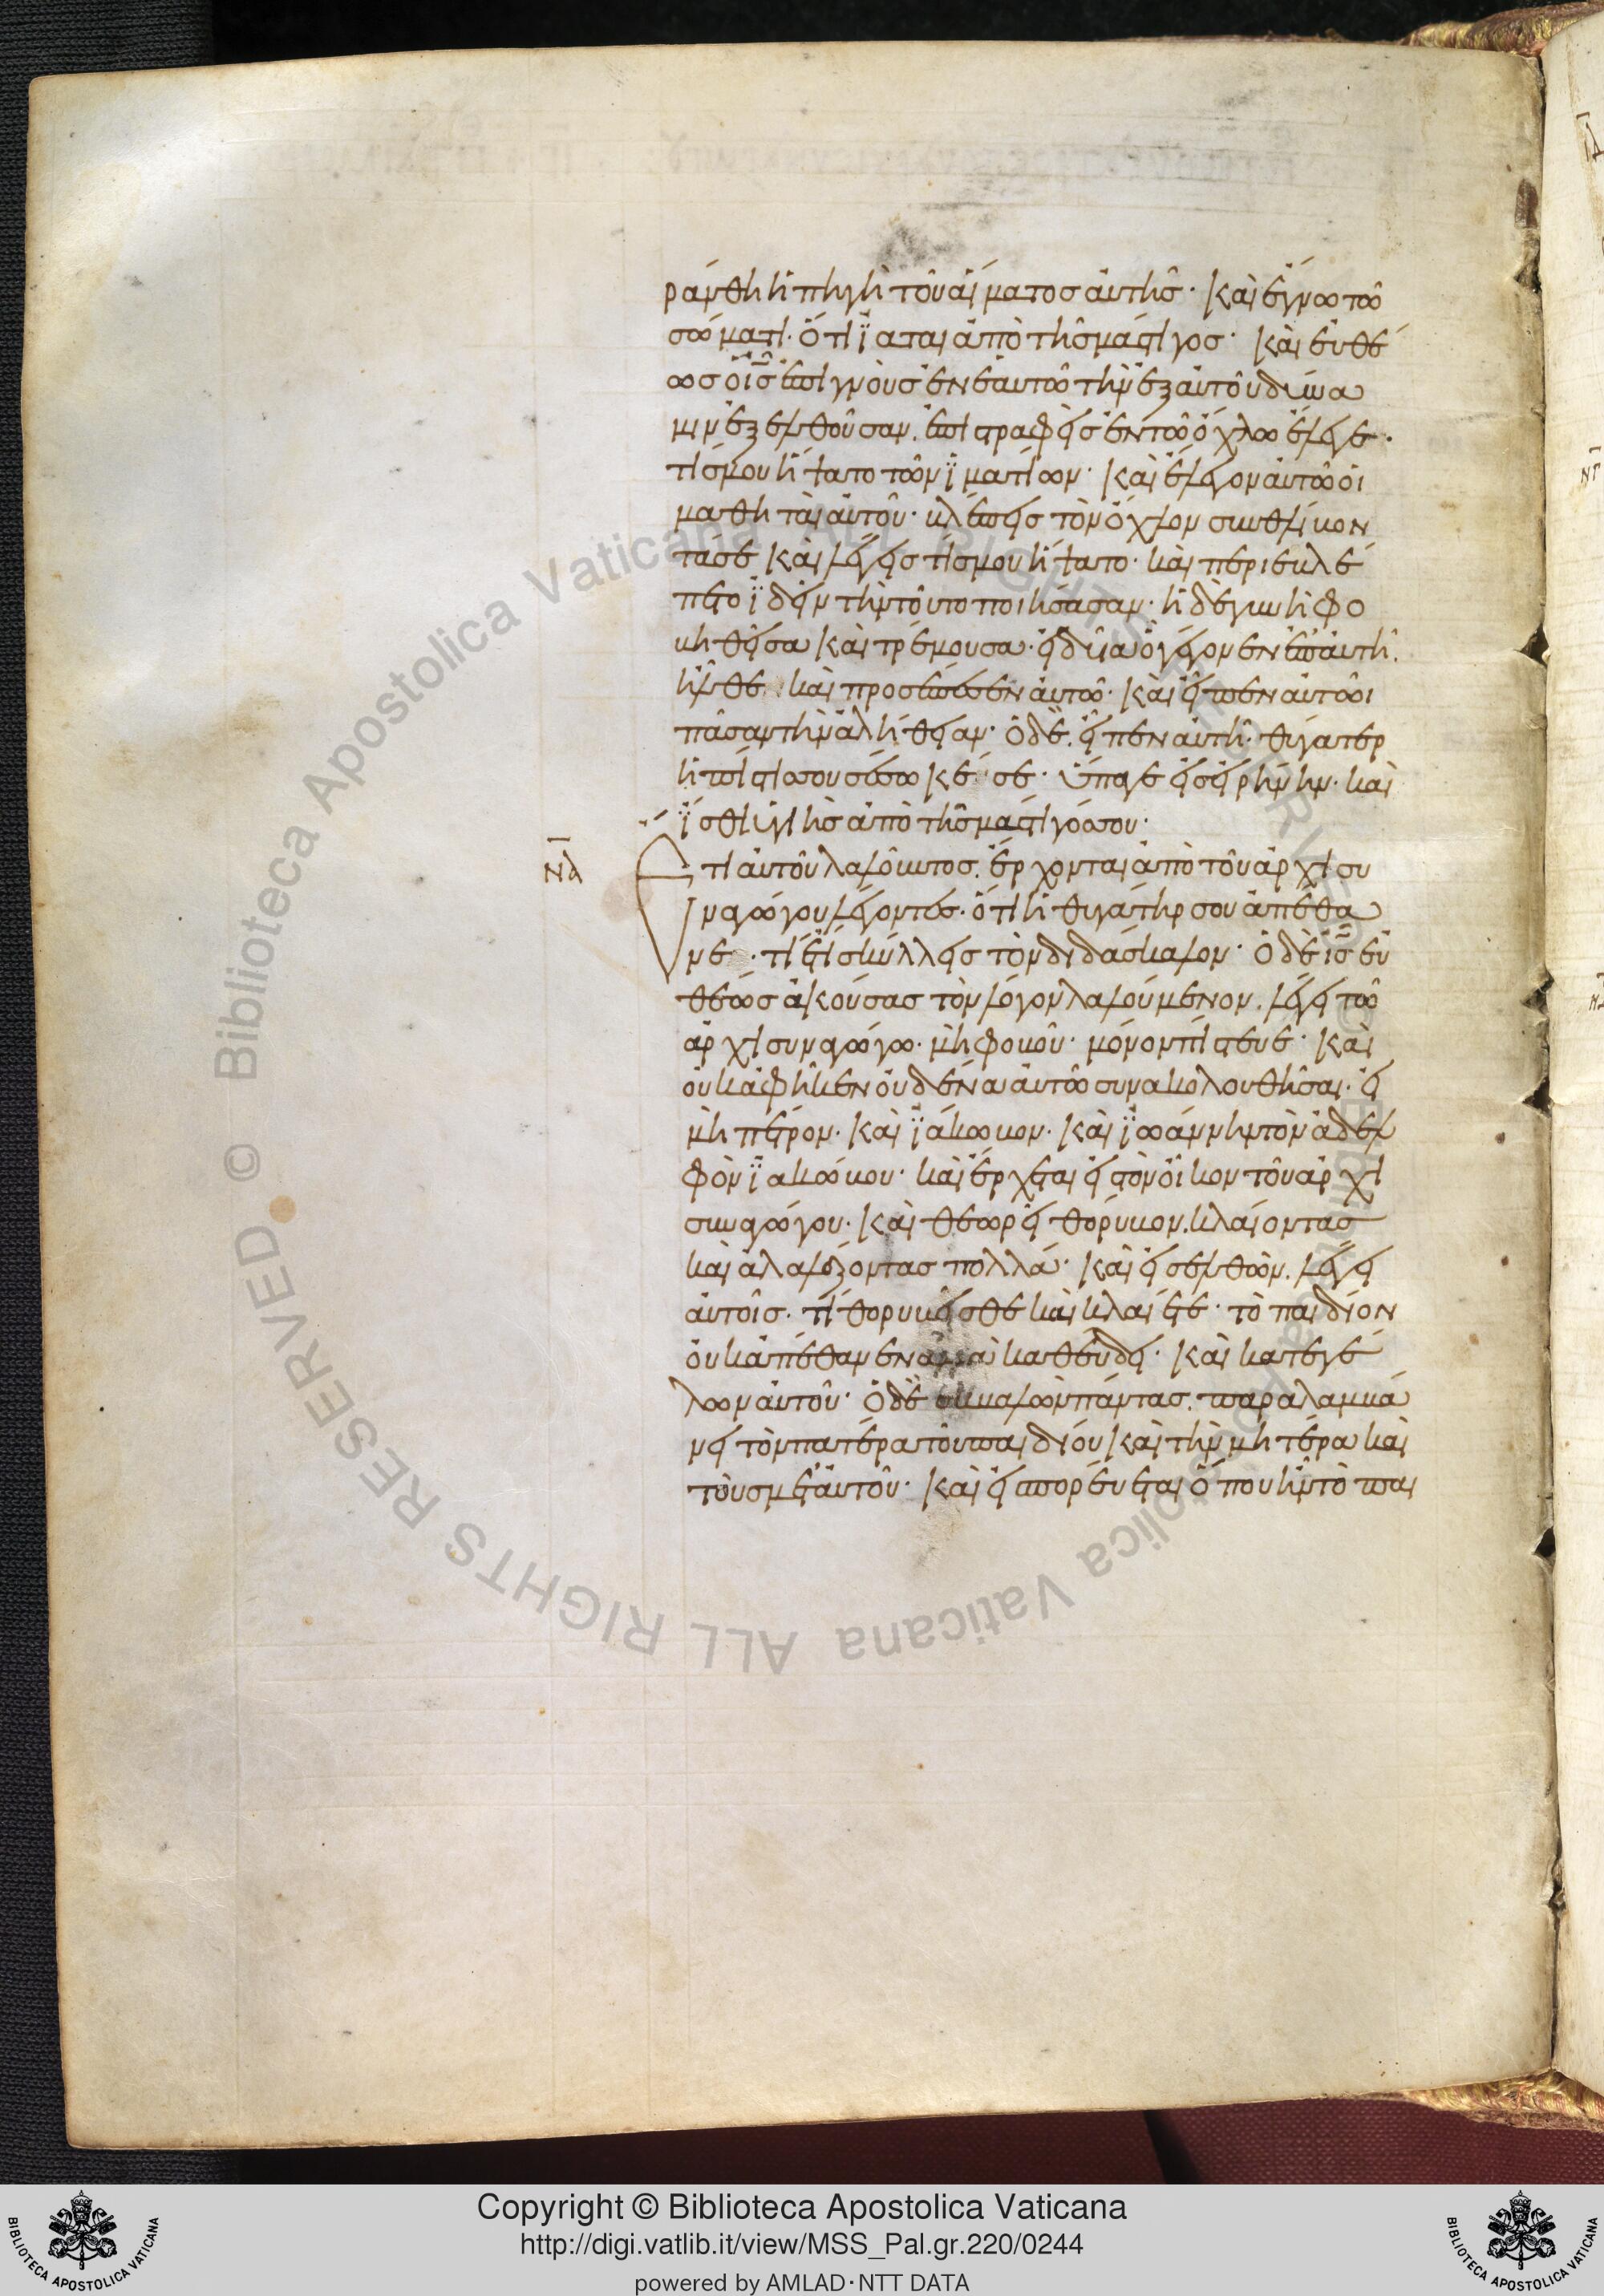 ράνθη ἡ πηγὴ τοῦ αἵματος αὐτῆς· καὶ ἔγνω τῶ
σώματι· ὅτι ϊαται ἀπὸ τῆς μάστιγος· καὶ εὐθέ
ως ὁ ις ἐπιγνοὺς ἐν ἑαυτῶ τὴν ἐξ αὐτοῦ δύνα
μιν ἐξελθοῦσαν. ἐπιστραφεὶς ἐν τῶ ὄχλω ἔλεγε·
τίς μου ἥψατο τῶν ϊματίων· καὶ ἔλεγον αὐτῶ οἱ
μαθηταὶ αὐτοῦ· βλέπεις τὸν ὄχλον συνθλίβον
τά σε καὶ λέγεις τίς μου ἥψατο· καὶ περιεβλέ
πετο ϊδεῖν τὴν τοῦτο ποιήσασαν· ἡ δὲ γυνὴ φο
βηθεῖσα καὶ τρέμουσα· εἰδυῖα ὃ γέγονεν ἐπ' αὐτῆ.
ἦλθε καὶ προσέπεσεν αὐτῶ· καὶ εἶπεν αὐτῶι
πᾶσαν τὴν ἀλήθειαν· ὁ δὲ. εἶπεν αὐτῆ· θύγατερ
ἡ πίστις σου σέσωκέ σε· ὕπαγε εἰς εἰρήνην· καὶ
ϊσθι ὑγιὴς ἀπὸ τῆς μάστιγός σου·
ΝΔ
Ετι αὐτοῦ λαλοῦντος. ἔρχονται ἀπὸ τοῦ ἀρχισυ
ναγώγου λέγοντες· ὅτι ἡ θυγάτηρ σου ἀπέθα
νε· τί ἔτι σκύλλεις τὸν διδάσκαλον· ὁ δὲ ις εὐ
θέως ἀκούσας τὸν λόγον λαλούμενον. λέγει τῶ
ἀρχισυναγώγω· μὴ φοβοῦ· μόνον πίστευε· καὶ
οὐκ ἀφῆκεν οὐδένα αὐτῶ συνακολουθῆσαι· εἰ
μὴ πέτρον· καὶ ϊάκωβον· καὶ ϊωάννην τὸν ἀδελ
φὸν ϊακώβου· καὶ ἔρχεται εἰς τὸν οἶκον τοῦ ἀρχι
συναγώγου· καὶ θεωρεῖ θόρυβον. κλαίοντας
καὶ ἀλαλάζοντας πολλά· καὶ εἰσελθὼν. λέγει
αὐτοῖς· τί θορυβεῖσθε καὶ κλαίετε· τὸ παιδίον
οὐκ ἀπέθανεν ἀλλὰ καθεύδει· καὶ κατεγέ
λων αὐτοῦ· ὁ δὲ ἐκβαλὼν πάντας. παραλαμβά
νει τὸν πατέρα τοῦ παιδίου καὶ τὴν μητέρα καὶ
τοὺς μετ' αὐτοῦ· καὶ εἰσπορεύεται ὅπου ἦν τὸ παι
Copyright © Biblioteca Apostolica Vaticana
http://digi.vatlib.it/view/MSS_Pal.gr.220/0244
powered by AMLAD·NTT DATA
BIBLIOTECA APOSTOLICA VATICANA
BIBLIOTECA APOSTOLICA VATICANA
© Biblioteca Apostolica Vaticana ALL RIGHTS RESERVED